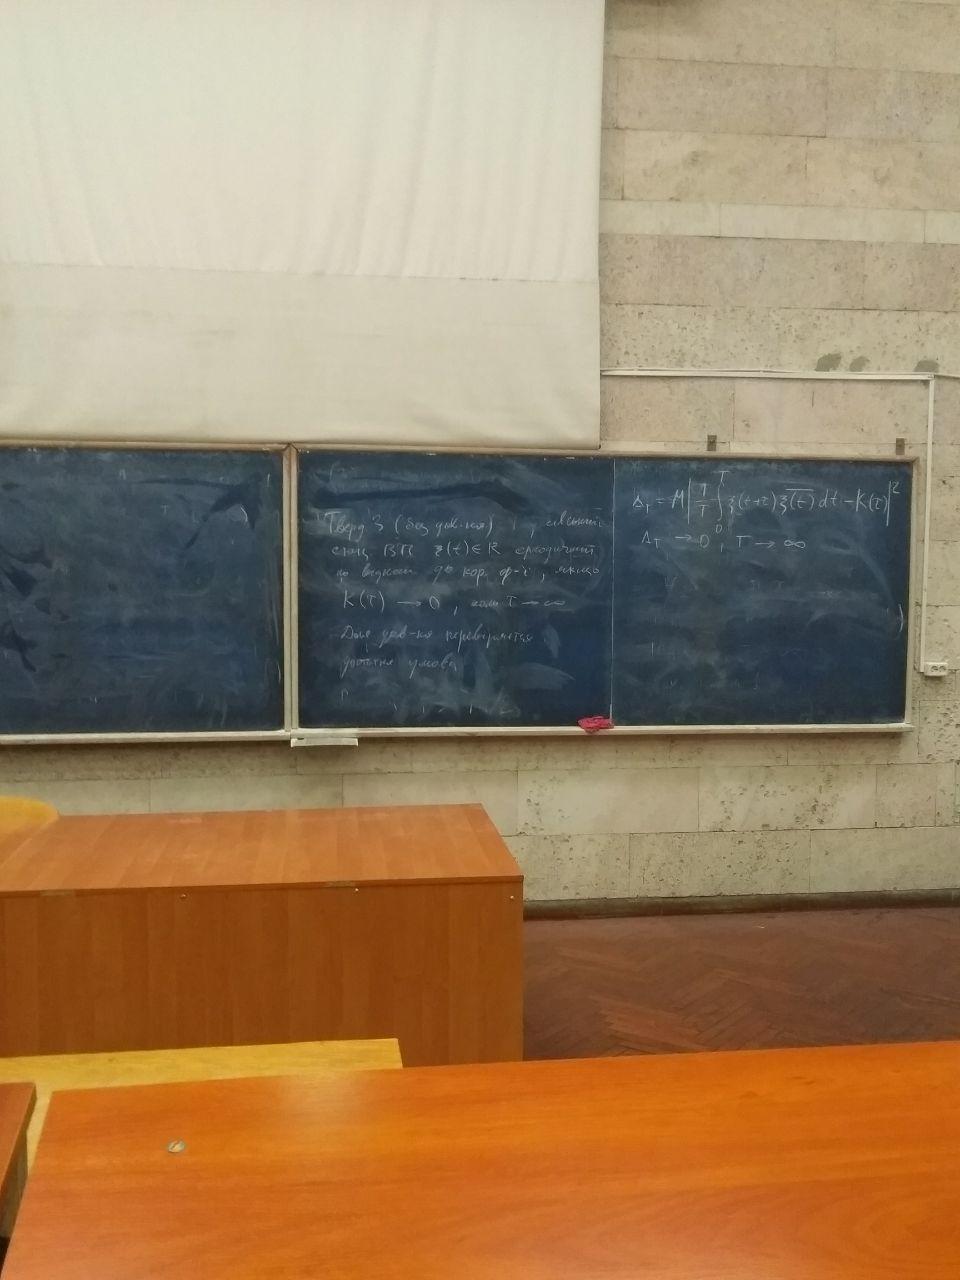 Тверд 3 (без дов-ня)
стац ВП ξ(t) ∈ R ергодичний
по віднош до кор. ф-ї, якщо
K(τ) → 0, коли τ → ∞
Для дов-ня перевіряється
достатня умова
Δ_T = M | 1/T ∫_0^T ξ(t+τ) \overline{ξ(t)} dt - K(τ) |^2
Δ_T → 0, T → ∞